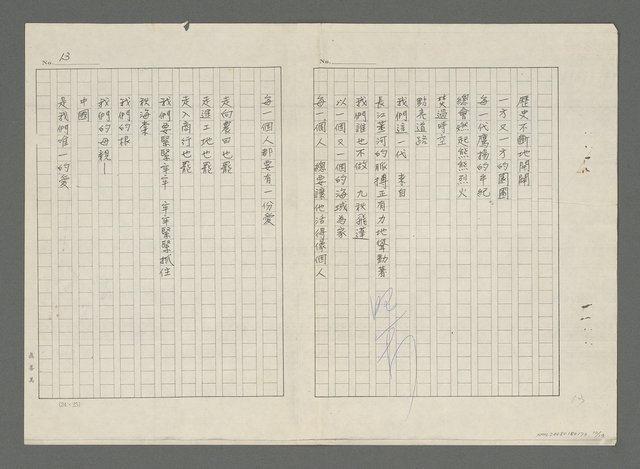 歷史不斷地開闢
一方又一方的園圃
每一代鷹揚的年紀
總會燃起熊熊烈火
焚過時空
點亮道路
我們這一代 來自
長江黃河的脈搏正有力地聳動著
我們誰也不做 九秋飛蓬
以一個又一個的海域為家
每一個人 總要讓他活得像個人
No. 13
每一個人都要有一份愛
走向農田也罷
走進工地也罷
走入商行也罷
我們要緊緊牢牢 牢牢緊緊抓住
秋海棠
我們的根
我們的母親—
中國
是我們唯一的愛
(24×25)
No.